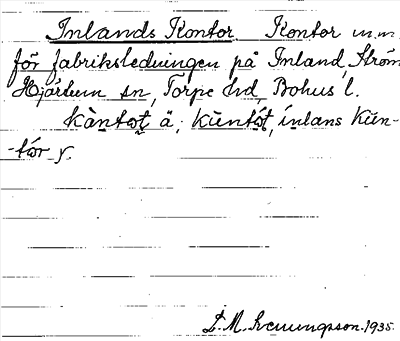 Inlands Kontor Kontor m.m.
för fabriksledningen på Inland, Ström
Hjärtum sn, Torpe hd, Bohus l.
kàntot ä, küentót, ínlans küen-
tór y.
L. M. Svenungsson. 1935.